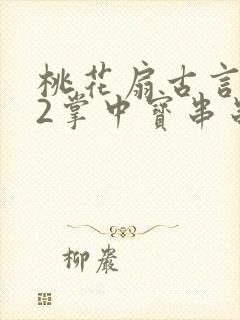 桃花扇古言
2掌中寶串
柳巖